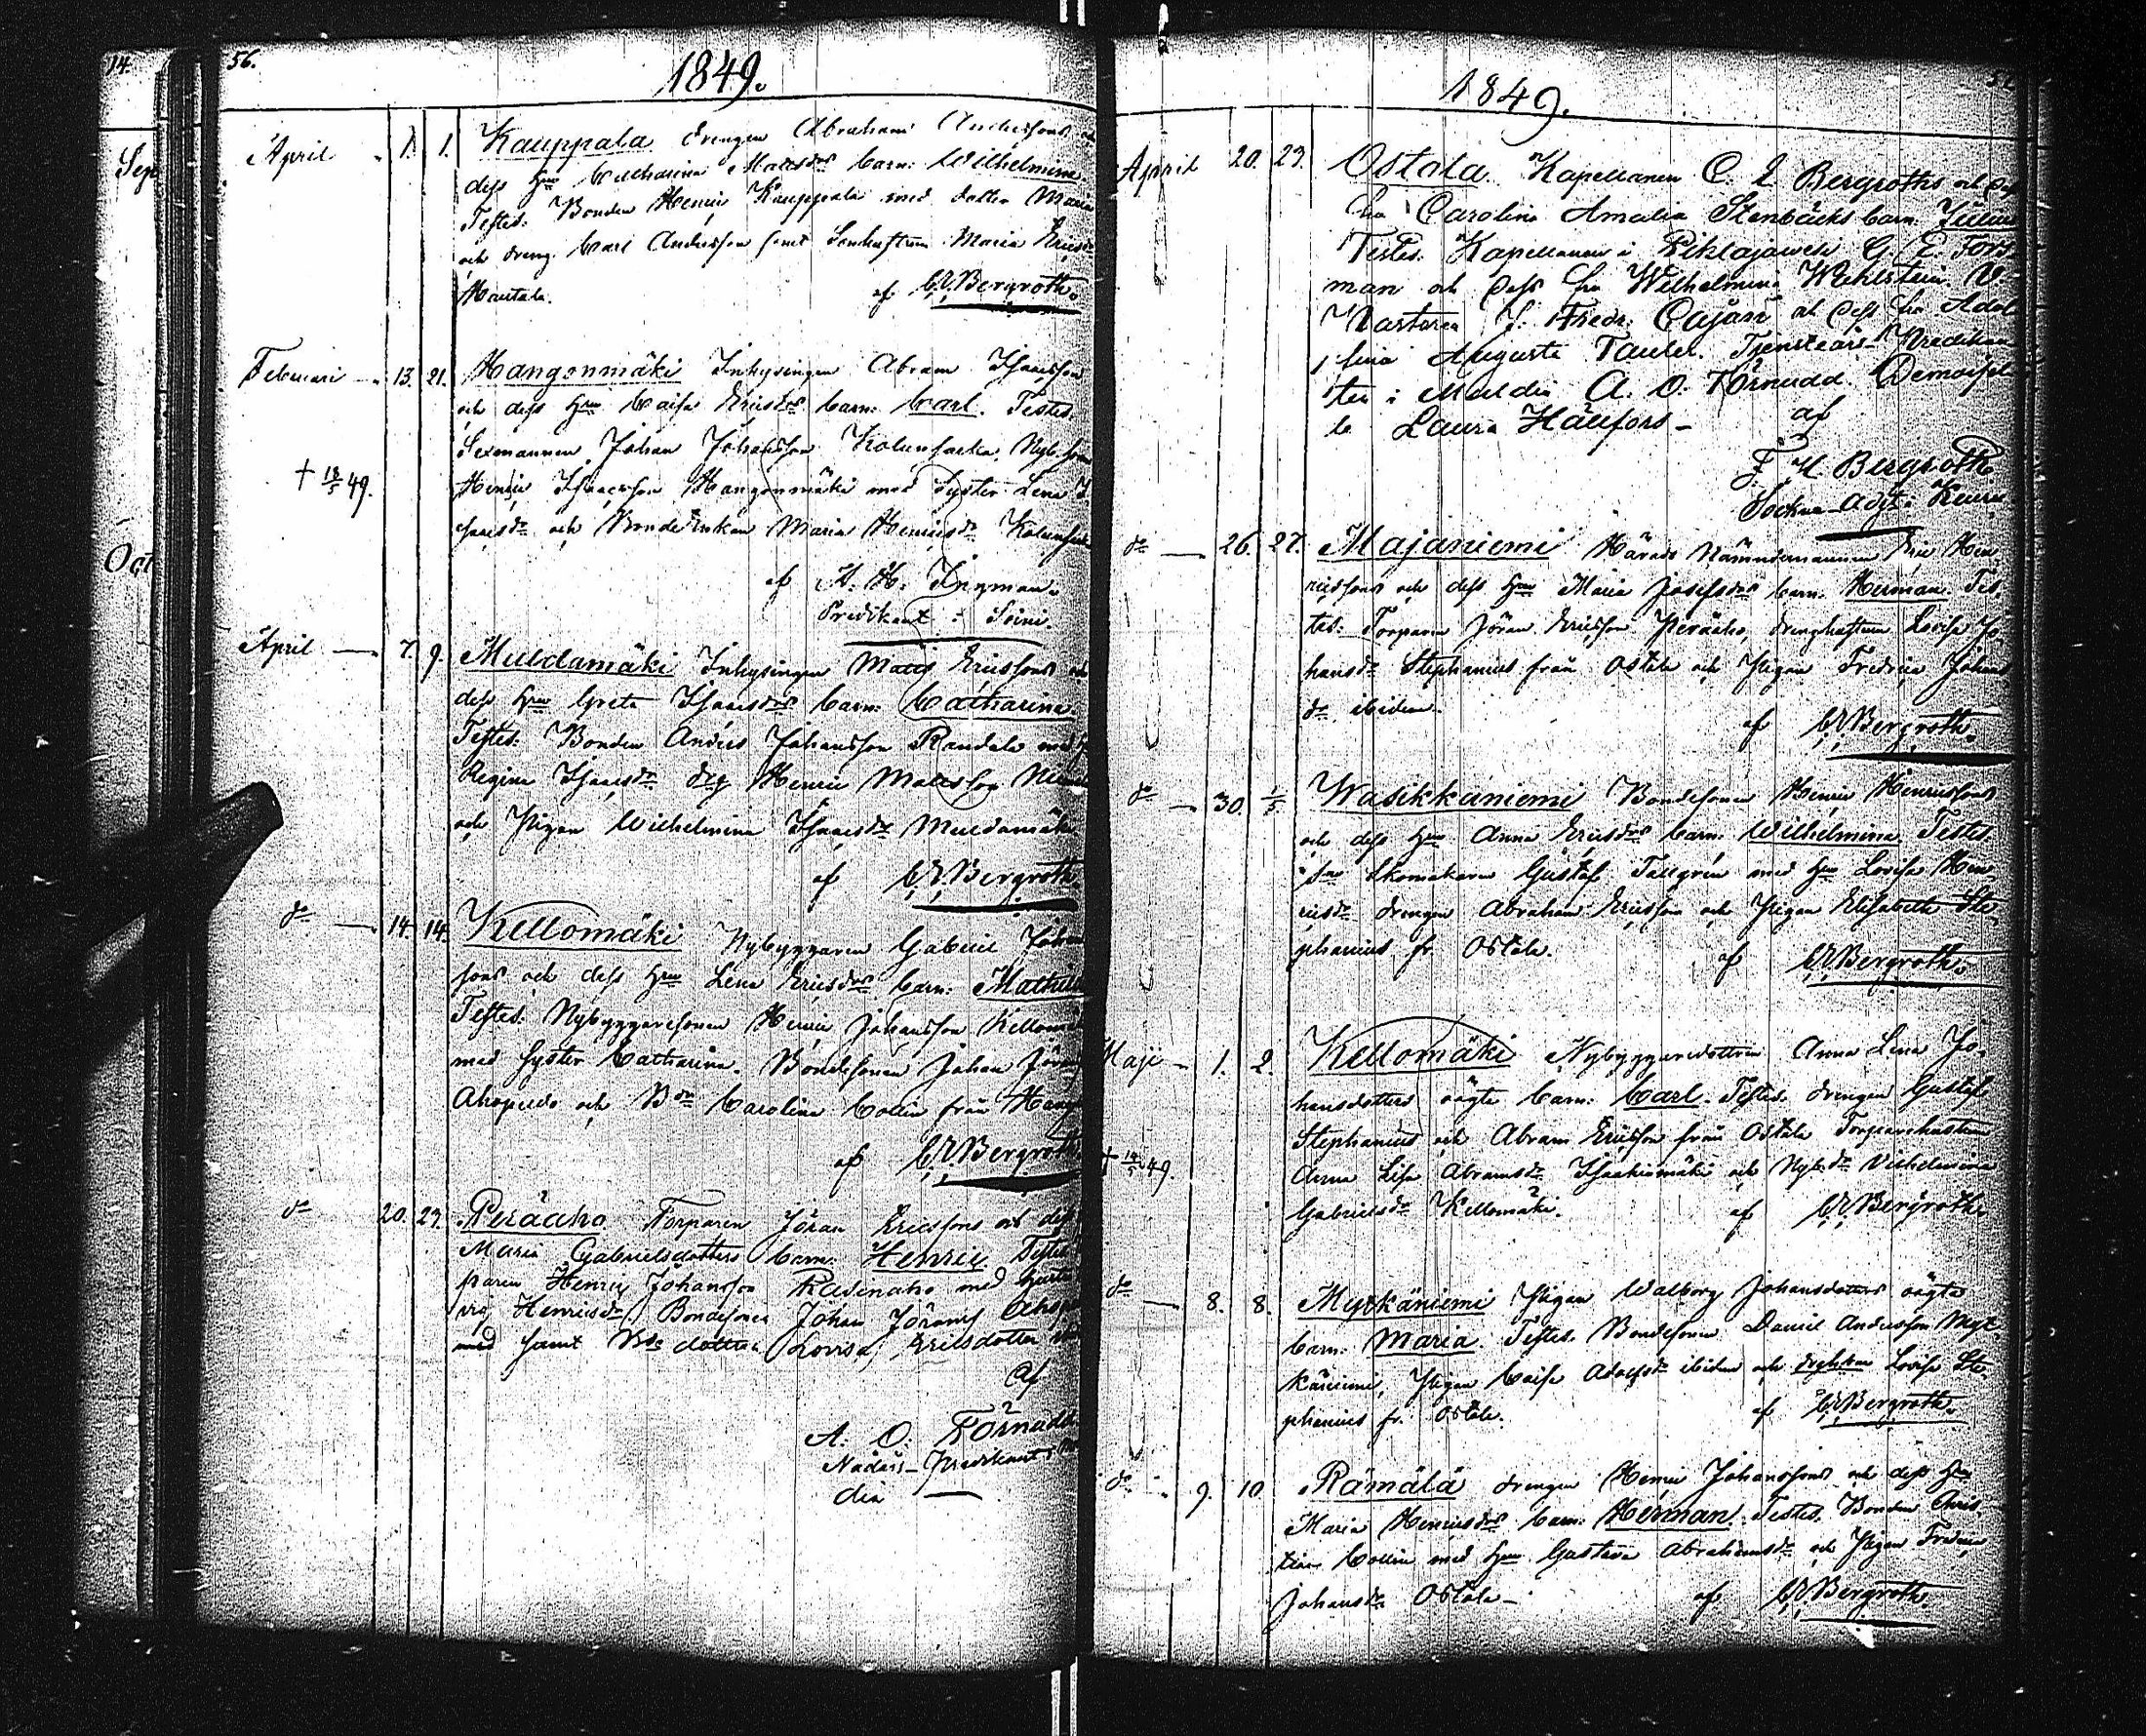 14.
Sept
Oct
56.
1849.
April 1. 1. Kauppala Drengen Abrahami Anderssons och
dess Hru Catharina Mattsdrs barn: Wilhelmina
Testes: Bonden Henric Kauppala med dotter Maria
och dreng. Carl Andersson samt Enkehustrun Maria Ericsdr
Hautala. af CEBergroth.
Februari 13. 21. Hangonmäki Inhysingen Abram Isaacsson
och dess Hru Caisa Ericsdrs barn: Carl. Testes
Sexmannen Johan Johansson
+ 18/5 49. Henric Isaacsson Hangonmäki med Syster Lena I
saacsdr och Bonde Enkan Maria Henricsdr
af H. H. Ingman.
Predikant i Soini.
April 7. 9. Muldamäki Inhysingen Matts Ericssons och
dess Hru Greta Isaacsdrs barn: Catharina
Testes: Bonden Anders Johansson Randala med H
Regina Isaacsdr drg Henric Mattsson
och Pigan Wilhelmina Isaacsdr Muldamäki
af CEBergroth.
do 14. 14. Kellomäki Nybyggaren Gabriel Johans
sons och dess Hru Lena Ericsdrs barn: Mathilda
Testes: Nybyggaresonen Henric Johansson Kellomä
med Syster Catharina. Bondesonen Johan Jörans
Ahopelto och Bdr Carolina Collin från Hang
af CEBergroth
do 20. 23. Peräaho Torparen Jöran Ericssons och dess
Maria Gabrielsdotters barn: Henric Testes
paren Henric Johansson med hustru
vig Henricsdr, Bondesonen Johan Jörans Ahop
med samt Bde dottern Lovisa Ericsdotter
af
A. O. Törnudd
Nådårs-Predikant i Mul
dia
1849.
April 20. 23. Ostola Kapellanen C. E Bergroths och dess
fru Carolina Amalia Stenbäcks barn Julius
Testes. Kapellanen i Pihlajawesi G. E. Fors
man och dess fru Wilhelmina Wehlstein. V.
Pastoren J. Fredr. Cajan och dess fru Adol
fina Augusta Tauler. Tjensteårs Predikan
ten i Muldia A. O. Törnudd Demoisel
le Laura Hällfors - af
F. H. Bergroth
Sockne-Adjt i Keuru
do 26. 27. Majaniemi Härads Nämndemannen Eric Hen
ricssons och dess Hru Maria Josefsdrs barn. Herman. Tes
tes: Torparen Jöran Ericsson Peräaho, drenghustrun Lovisa Jo
hansdr Stephanius från Ostola och Pigan Fredrica Johans
dr ibidem. af CEBergroth.
do 30. 1/5 Wasikkaniemi Bondesonen Henric Henricssons
och dess Hru Anna Ericsdrs barn: Wilhelmina. Testes.
Skomakaren Gustaf Tallgrén med Hru Lovisa Hen
ricsdr drengen Abraham Ericsson och Pigan Elisabeth Ste-
phanius fr. Ostola. af CEBergroth.
Maji 1. 2. Kellomäki Nybyggaredottren Anna Lena Jo-
hansdotters oägta barn: Carl. Testes. drengen Gustaf
Stephanius och Abram Ericsson från Ostola Torparehustrun
+ 14/5 49. Anna Lisa Abramsdr Isaakinmäki och Nyb.dr Vilhelmina
Gabrielsdr Kellomäki. af CEBergroth
do 8. 8. Myrkäniemi Pigan Walborg Johansdotters oägta
barn: Maria. Testes. Bondesonen Daniel Andersson Myr-
käniemi, Pigan Caisa Adolfsdr ibidem och Lovisa Ste-
phanius fr. Ostola. af CEBergroth.
do 9. 10 Rämälä drengen Henric Johanssons och dess Hru
Maria Henricsdrs barn: Herman. Testes. Bonden Chris-
tian Collin med Hru Gustava Abrahamsdr och Pigan Fredrica
Johansdr Ostola - af CEBergroth